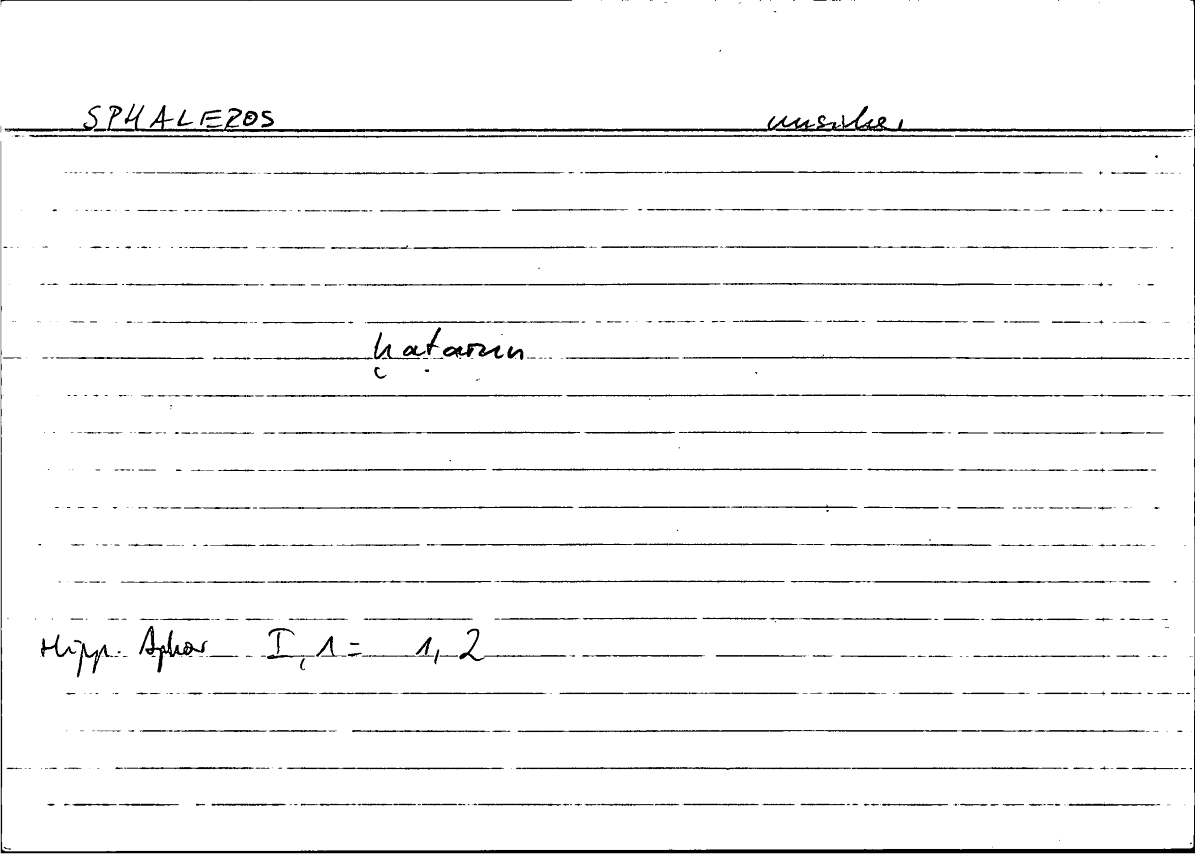 SPHALEROS unsicher
ḫaṭarun
Hipp. Aphor I,1 = 1,2